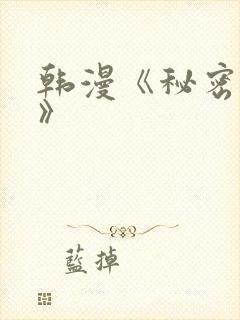 韩漫《秘密
》
藍掉